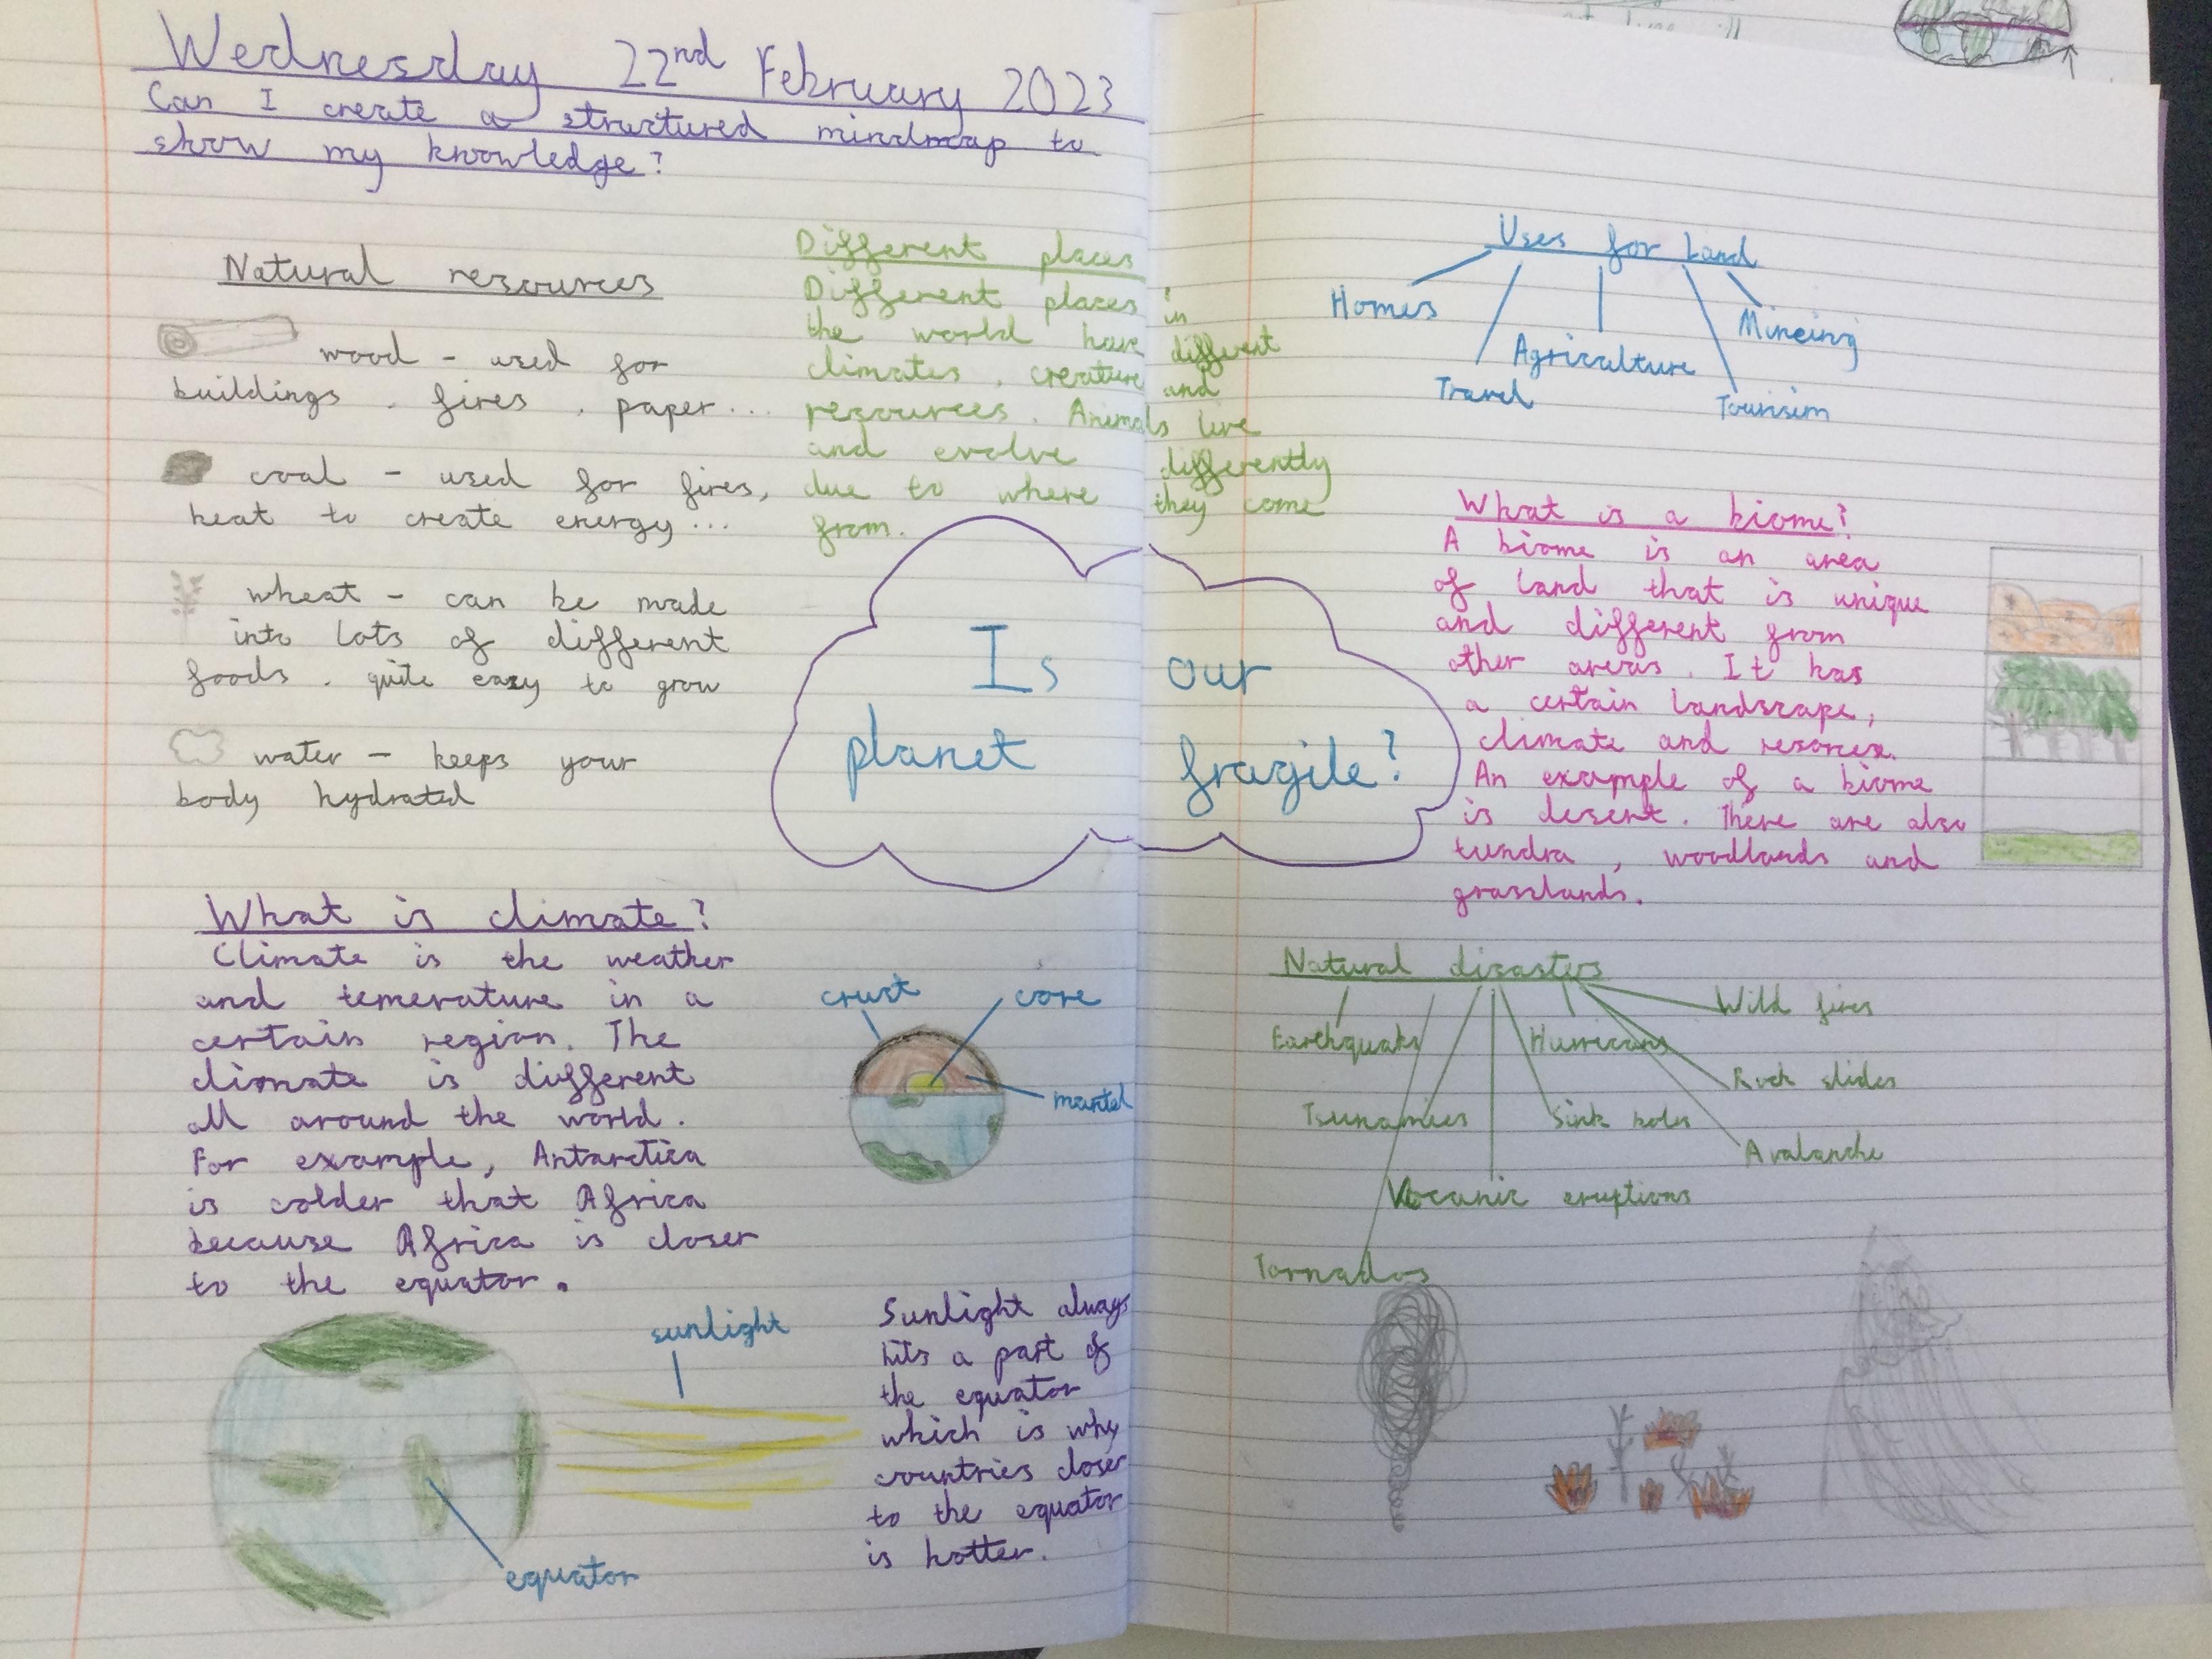 Wednesday 22nd February 2023
Can I create a structured mindmap to
show my knowledge?
Natural resources
wood - used for
buildings, fires, paper...
coal - used for fires,
heat to create energy...
wheat - can be made
into lots of different
foods, quite easy to grow
water - keeps your
body hydrated
Different places
Different places in
the world have different
climates, creature and
resources. Animals live
and evolve differently
due to where they come
from.
Is our
planet fragile?
What is climate?
Climate is the weather
and temerature in a
certain region. The
climate is different
all around the world.
For example, Antarctica
is colder that Africa
because Africa is closer
to the equator.
crust
core
mantel
sunlight
equator
Sunlight always
hits a part of
the equator
which is why
countries closer
to the equator
is hotter.
Uses for Land
Homes
Travel
Agriculture
Tourisim
Mineing
What is a biome?
A biome is an area
of land that is unique
and different from
other areas. It has
a certain landscape,
climate and
An example of a biome
is desert. There are also
tundra, woodlands and
grasslands.
Natural disasters
Wild fires
Hurricans
Rock slides
Tsunamies
Sink holes
Avalanche
eruptions
Tornados